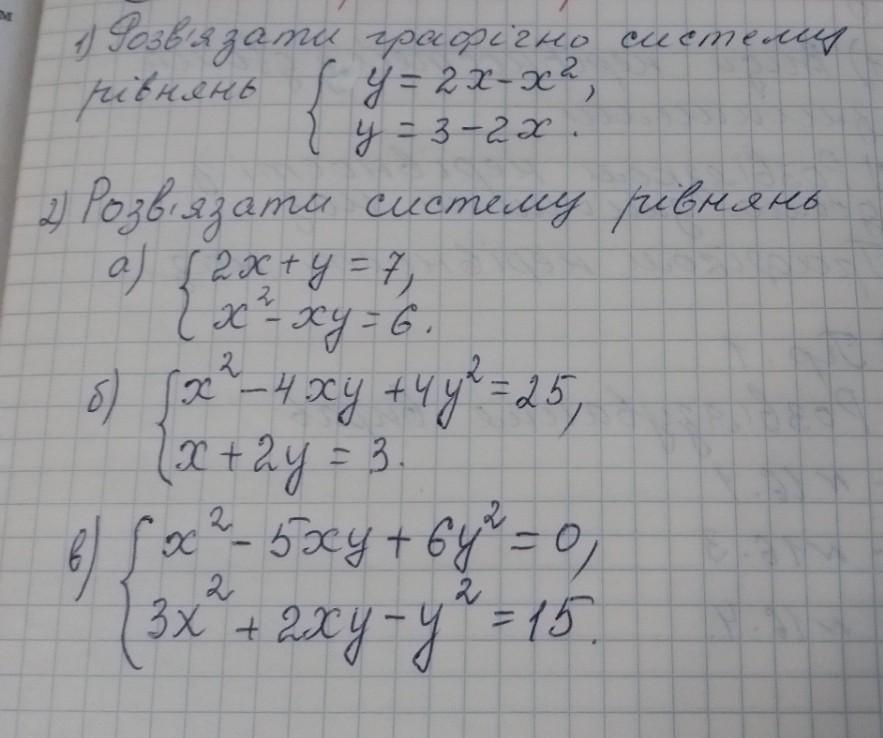 1) Розв'язати графічно систему
рівнянь { y = 2x - x²,
y = 3 - 2x.
2) Розв'язати систему рівнянь
а) { 2x + y = 7,
x² - xy = 6.
б) { x² - 4xy + 4y² = 25,
x + 2y = 3.
в) { x² - 5xy + 6y² = 0,
3x² + 2xy - y² = 15.